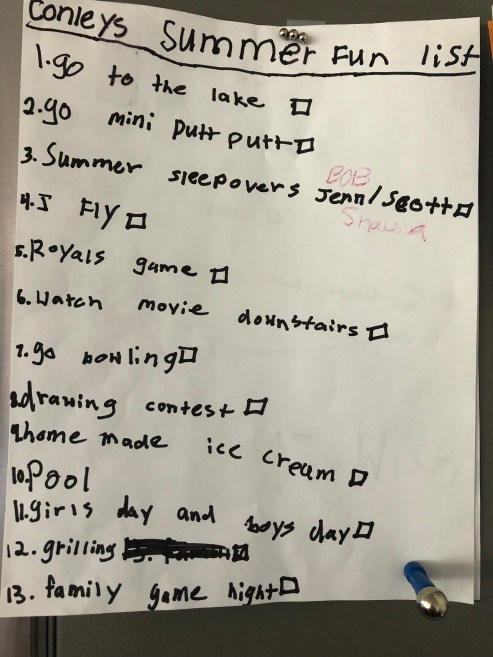 Conleys Summer Fun list
1. go to the lake
2. go mini putt putt
3. Summer sleepovers Jenn/Scott
BOB
Shawna
4. I Fly
5. Royals game
6. Watch movie downstairs
7. go bowling
8. drawing contest
9. home made ice cream
10. Pool
11. girls day and boys day
12. grilling
13. family game night